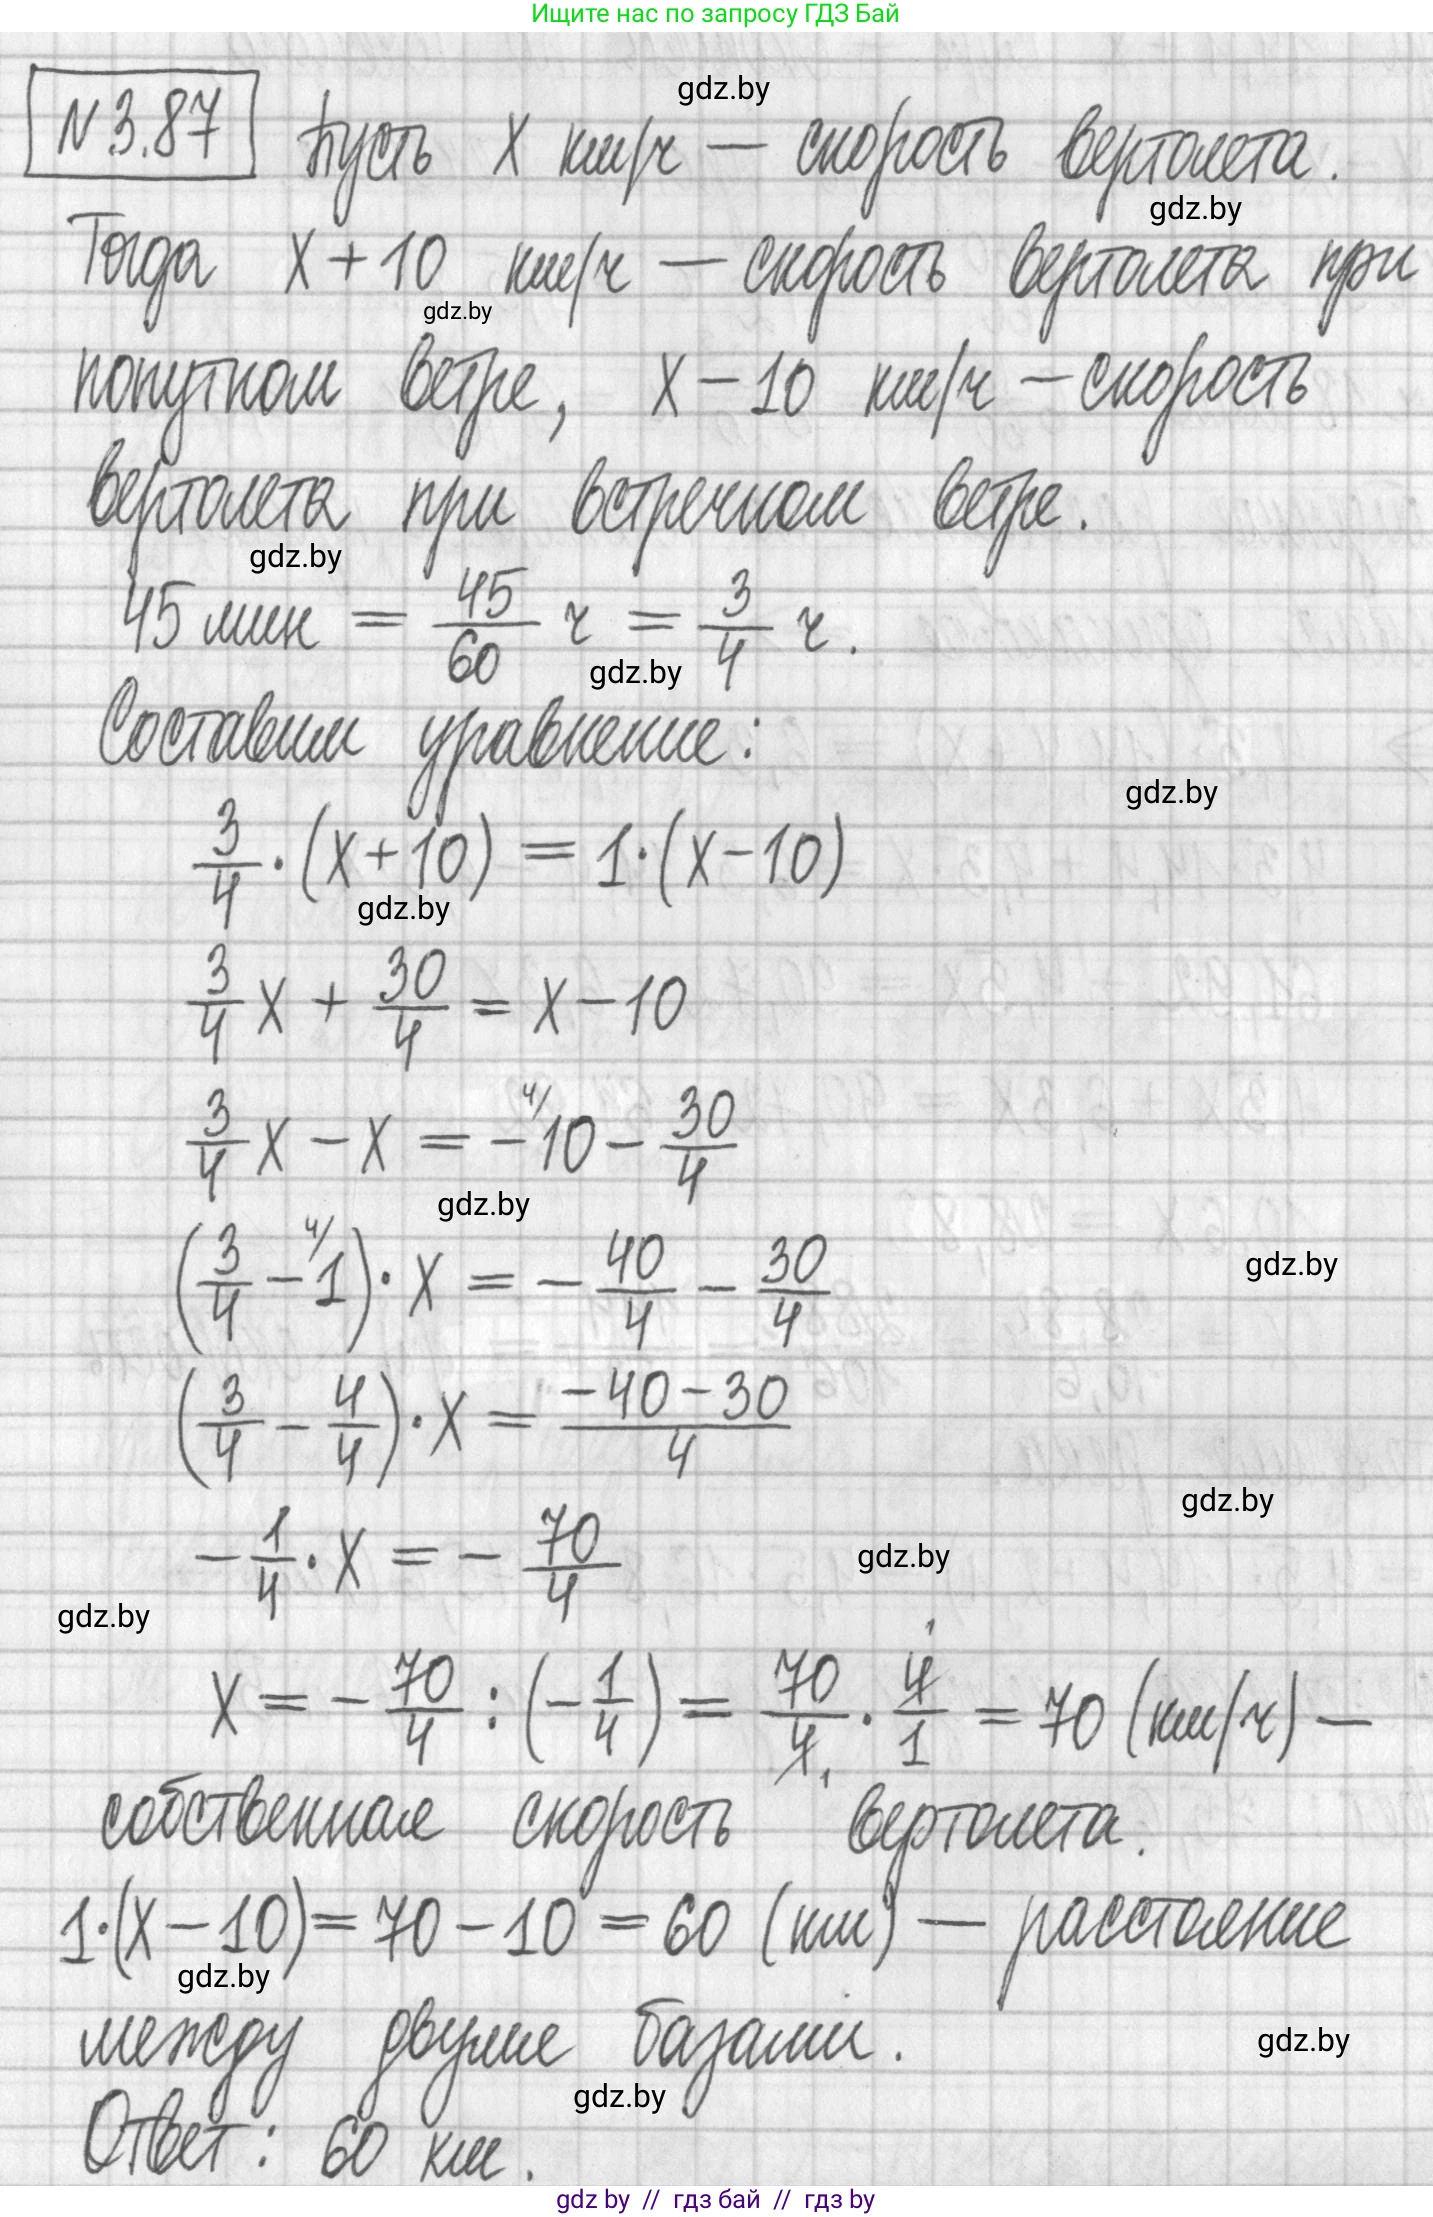 Ищите нас по запросу ГДЗ Бай
N 3.87 Пусть x км/ч — скорость вертолета.
gdz.by
gdz.by
Тогда x + 10 км/ч — скорость вертолета при
gdz.by
попутном ветре, x − 10 км/ч — скорость
вертолета при встречном ветре.
gdz.by
45 мин = 45/60 ч = 3/4 ч.
gdz.by
Составим уравнение:
gdz.by
3/4 · (x+10) = 1·(x−10)
gdz.by
3/4 x + 30/4 = x − 10
3/4 x − x = − 4/ 10 − 30/4
gdz.by
(3/4 − 4/ 1) · x = − 40/4 − 30/4
gdz.by
(3/4 − 4/4) · x = (−40−30)/4
gdz.by
− 1/4 · x = − 70/4
gdz.by
gdz.by
x = − 70/4 : (− 1/4) = 70/4 1 · 4 1/1 = 70 (км/ч) —
собственная скорость вертолета.
1·(x − 10) = 70 − 10 = 60 (км) — расстояние
gdz.by
между двумя базами.
gdz.by
gdz.by
Ответ: 60 км.
gdz by // гдз бай // гдз by